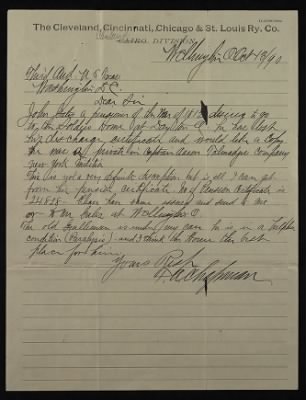 The Cleveland, Cincinnati, Chicago & St. Louis Ry. Co.
CAIRO DIVISION.
Wellington O Oct 13/90
Third Aud. U S Treas
Washington D.C.
Dear Sir
John a pensioner of the War of 1812 desires to go
to the Soldiers Home at Dayton O. he has lost
his discharge certificate and would like a Copy.
He was a private in Captain Aaron Talmadges Company
New York Militia
This is not a very definite description but is all I can get
from his pension certificate. No of Pension Certificate is
24818. Please have same issued and send to me
or to at Wellington O.
The old Gentleman is under my care he is in a helpless
condition (Paralysis) and I think the Home the best
place for him.
Yours Resp.
Chapman